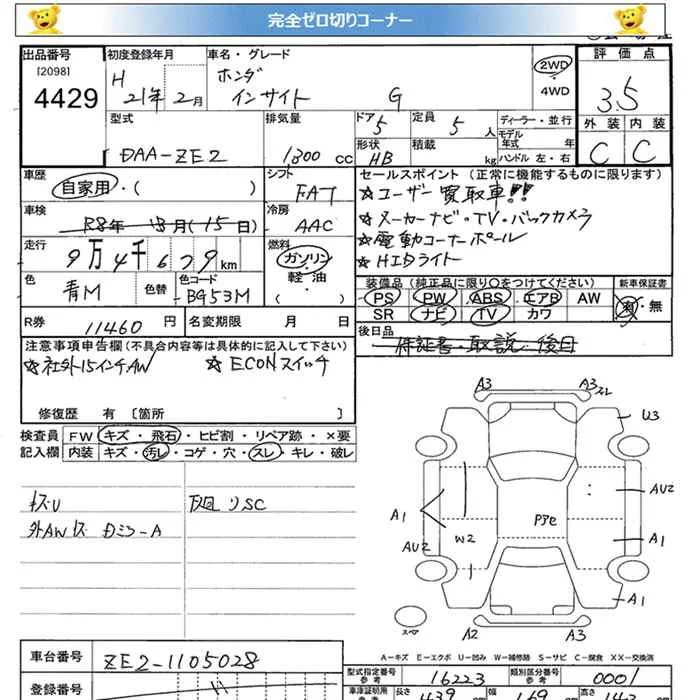 完全ゼロ切りコーナー
出品番号
[2098]
4429
初度登録年月
H 21年 2月
車名・グレード
ホンダ
インサイト G
2WD
4WD
評価点
3.5
外装 内装
C C
型式
DAA-ZE2
排気量
1,300 cc
ドア 5
定員 5 人
形状 HB
積載 kg
ディーラー・並行
モデル年式 年
ハンドル 左・右
車歴
自家用・( )
車検
R8年 月(15日)
走行
9万4千679km
色
青M
色替
色コード
B953M
シフト
FAT
冷房
AAC
燃料
ガソリン
軽・油
( )
セールスポイント (正常に機能するものに限ります)
☆ユーザー買取車!!
☆メーカーナビ・TV・バックカメラ
☆電動コーナーポール
☆HIDライト
装備品 (純正品に限り○をつけてください)
新車保証書
PS PW ABS エアB AW
SR ナビ TV カワ
有・無
R券
11460 円
名変期限 月 日
後日品
保証書・取説 後日
注意事項申告欄 (不具合内容等は具体的に記入して下さい)
☆社外15インチAW ☆ECONスイッチ
修復歴 有 [箇所 ]
検査員記入欄
FW キズ・飛石・ヒビ割・リペア跡・×要
内装 キズ・汚レ・コゲ・穴・スレ・キレ・破レ
外AWキズ
リSC
A3
A3
U3
A1
AU2
W2
Pアと
AU2
A1
A1
スペア
A2
A3
A-キズ E-エクボ U-凹み W-補修跡 S-サビ C-腐食 XX-交換済
車台番号
ZE2-1105028
登録番号
型式指定番号 参考
16223
類別区分番号 参考
0001
車庫証明用 参考
長さ 439 cm
幅 169 cm
高さ